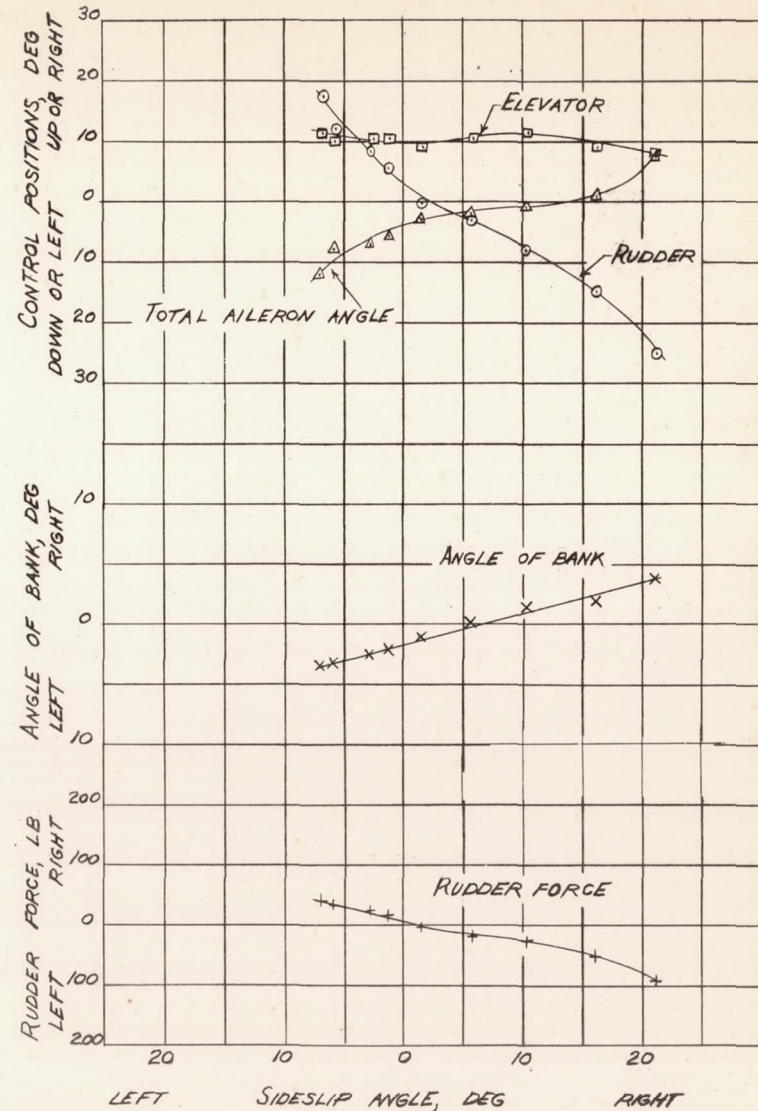 CONTROL POSITIONS, DEG
DOWN OR LEFT UP OR RIGHT
30
20
10
0
10
20
30
ELEVATOR
RUDDER
TOTAL AILERON ANGLE
ANGLE OF BANK, DEG
LEFT RIGHT
10
0
10
ANGLE OF BANK
RUDDER FORCE, LB
LEFT RIGHT
200
100
0
100
200
RUDDER FORCE
20 10 0 10 20
LEFT SIDESLIP ANGLE, DEG RIGHT